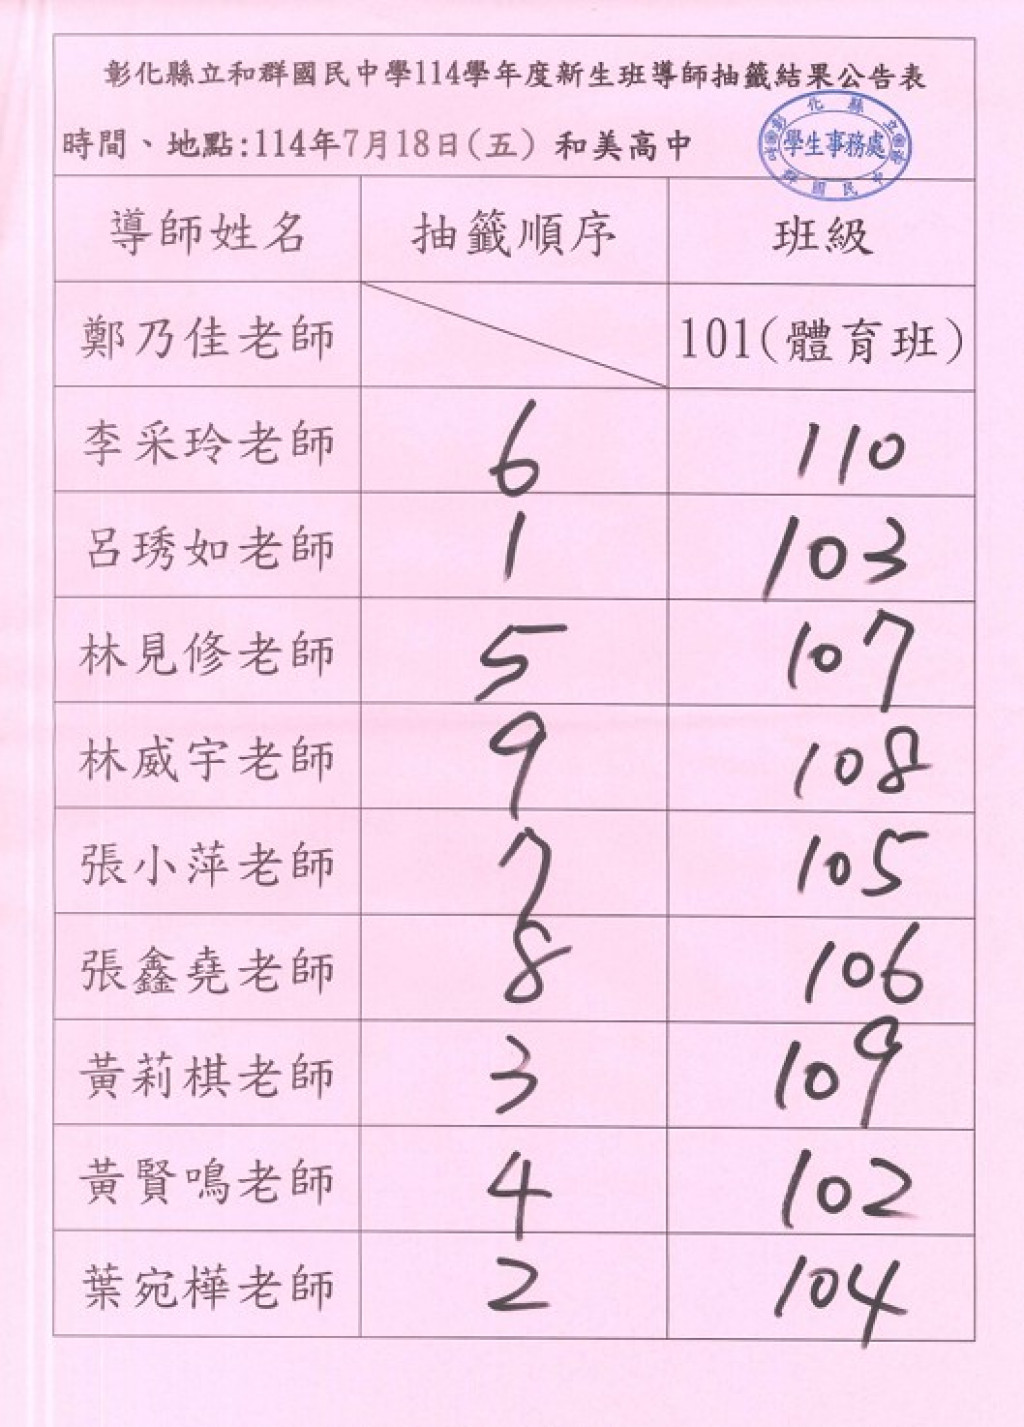 彰化縣立和群國民中學114學年度新生班導師抽籤結果公告表
時間、地點:114年7月18日(五) 和美高中
彰化縣立
學生事務處
和群國民中學
導師姓名 抽籤順序 班級
鄭乃佳老師 101(體育班)
李采玲老師 6 110
呂琇如老師 1 103
林見修老師 5 107
林威宇老師 9 108
張小萍老師 7 105
張鑫堯老師 8 106
黃莉棋老師 3 109
黃賢鳴老師 4 102
葉宛樺老師 2 104